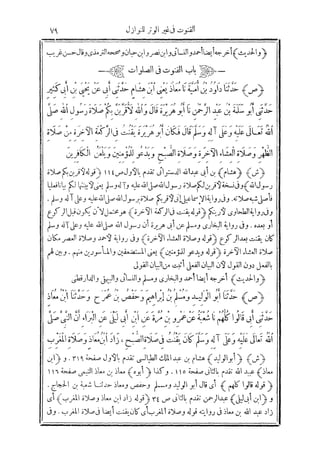 القنوت فى غير الوتر للنوازل ٧٩
﴿والحديث﴾ أخرجه أيضا أحمد والنسائى وابن نصر وابن حبان وصححه الترمذى وقال حسن غريب
باب القنوت فى الصلوات
﴿ص﴾ حَدَّثَنَا دَاوُدُ بْنُ أُمَيَّةَ نَا مُعَاذٌ يَعْنِى ابْنَ هِشَامٍ حَدَّثَنِى أَبِى عَنْ يَحْيَى بْنِ أَبِى كَثِيرٍ
حَدَّثَنِى أَبُو سَلَمَةَ بْنُ عَبْدِ الرَّحْمَنِ نَا أَبُو هُرَيْرَةَ قَالَ وَاللهِ لَأُقَرِّبَنَّ بِكُمْ صَلَاةَ رَسُولِ اللهِ صَلَّى
اللهُ تَعَالَى عَلَيْهِ وَعَلَى آلِهِ وَسَلَّمَ قَالَ فَكَانَ أَبُو هُرَيْرَةَ يَقْنُتُ فِى الرَّكْعَةِ الْآخِرَةِ مِنْ صَلَاةِ
الظُّهْرِ وَصَلَاةِ الْعِشَاءِ الْآخِرَةِ وَصَلَاةِ الصُّبْحِ وَيَدْعُو لِلْمُؤْمِنِينَ وَيَلْعَنُ الْكَافِرِينَ
﴿ش﴾ ﴿هشام﴾ بن أبى عبد الله الدستوائى تقدم بالأول ص ١١٤ ﴿قوله لأقربن بكم صلاة
رسول الله﴾ وفى نسخة لأقربن لكم صلاة رسول الله صلى الله عليه وآله وسلم يعنى لأبينها لكم بإتيانى بها
فأصلى شبه صلاته. وفى رواية الإسماعيلى إنى لأقربكم صلاة برسول الله صلى الله عليه وعلى آله وسلم.
وفى رواية الطحاوى لأرينكم ﴿قوله يقنت فى الركعة الآخرة﴾ هو محتمل لأن يكون قبل الركوع
أو بعده. وفى رواية البخارى ومسلم عن أبى هريرة أن رسول الله صلى الله عليه وعلى آله وسلم
كان يقنت بعد الركوع ﴿قوله وصلاة العشاء الآخرة﴾ وفى رواية لأحمد وصلاة العصر مكان
صلاة العشاء الآخرة ﴿قوله ويدعو للمؤمنين﴾ يعنى المستضعفين والمأسورين منهم. وبين لهم
بالفعل دون القول لأن البيان الفعلى أثبت من البيان القولى
﴿والحديث﴾ أخرجه أيضا أحمد والبخارى ومسلم والنسائى والبيهقى والدارقطنى
﴿ص﴾ حَدَّثَنَا أَبُو الْوَلِيدِ وَمُسْلِمُ بْنُ إِبْرَاهِيمَ وَحَفْصُ بْنُ عُمَرَ ح وَحَدَّثَنَا ابْنُ مُعَاذٍ
حَدَّثَنِى أَبِى قَالُوا كُلُّهُمْ نَا شُعْبَةُ عَنْ عَمْرِو بْنِ مُرَّةَ عَنِ ابْنِ أَبِى لَيْلَى عَنِ الْبَرَاءِ أَنَّ النَّبِىَّ صَلَّى
اللهُ تَعَالَى عَلَيْهِ وَعَلَى آلِهِ وَسَلَّمَ كَانَ يَقْنُتُ فِى صَلَاةِ الصُّبْحِ، زَادَ ابْنُ مُعَاذٍ وَصَلَاةِ الْمَغْرِبِ
﴿ش﴾ ﴿أبو الوليد﴾ هشام بن عبد الملك الطيالسى تقدم بالأول صفحة ٣١٩. و﴿ابن
معاذ﴾ عبيد الله تقدم بالثانى صفحة ١١٥. وكذا ﴿أبوه﴾ معاذ بن معاذ التيمى صفحة ١١٦
﴿قوله قالوا كلهم﴾ أى قال أبو الوليد ومسلم وحفص ومعاذ حدثنا شعبة بن الحجاج.
و﴿ابن أبى ليلى﴾ عبد الرحمن تقدم بالثانى ص ٣٤ ﴿قوله زاد ابن معاذ وصلاة المغرب﴾ أى
زاد عبيد الله بن معاذ فى روايته قوله وصلاة المغرب أى كان يقنت أيضا فى صلاة المغرب. وفى